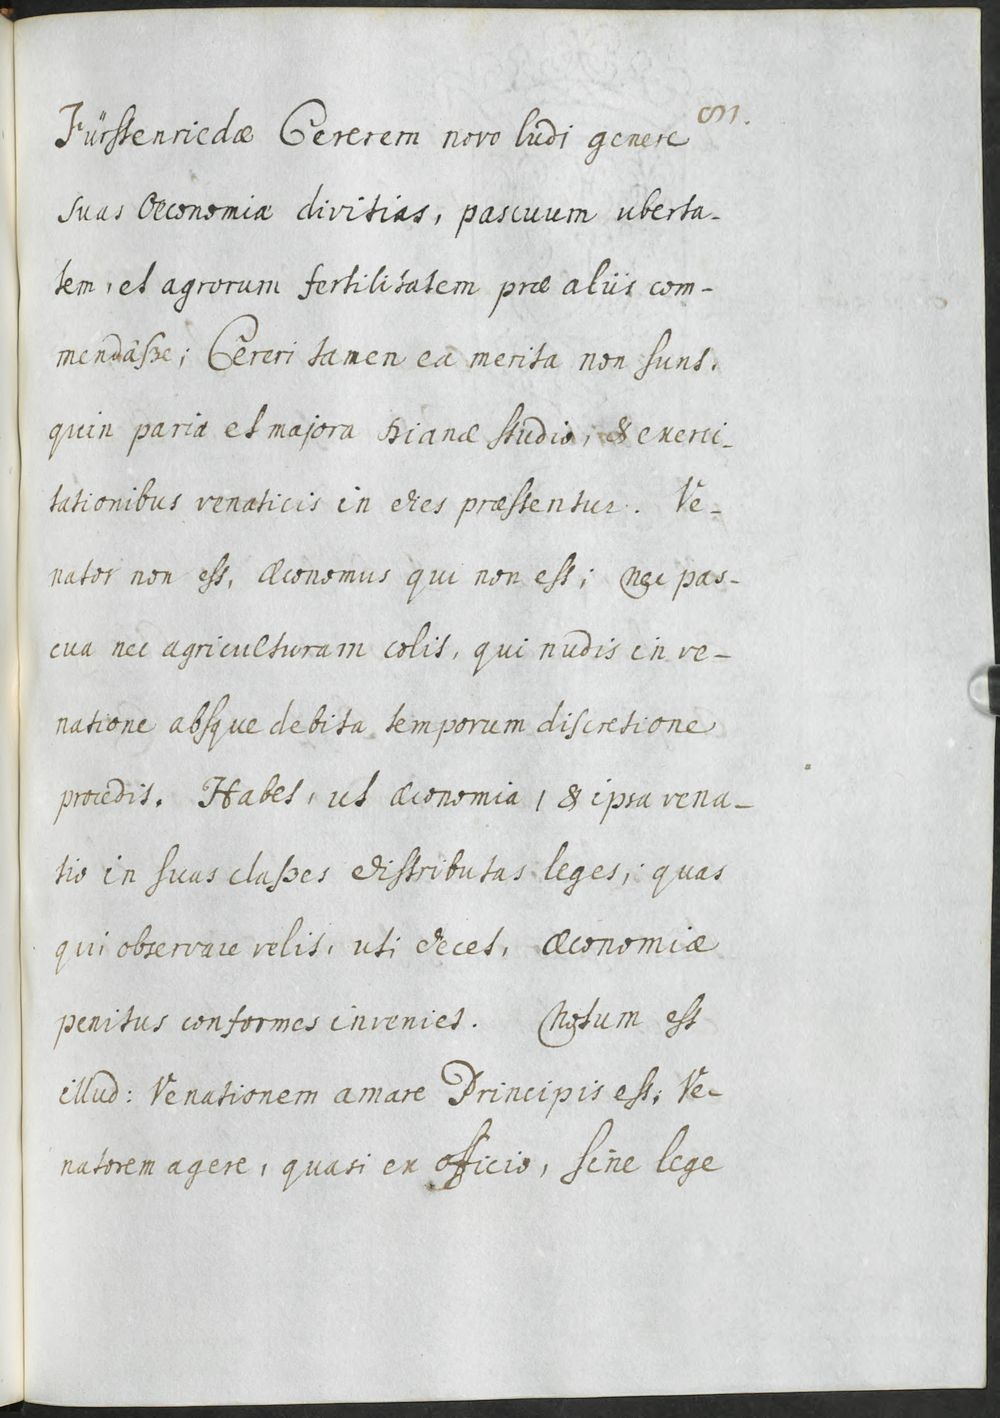 51.
Fürstenriedæ Cererem novo ludi genere
suas Oeconomiæ divitias, pascuum uberta-
tem, et agrorum fertilitatem præ aliis com-
mendâsse; Cereri tamen ea merita non sunt,
quin paria et majora Dianæ studio, & exerci-
tationibus venaticis in dies præstentur. Ve-
nator non est, œconomus qui non est; Nec pas-
cua nec agriculturam colit, qui nudis in ve-
natione absque debita temporum discretione
procedit. Habet, ut œconomia, & ipsa vena-
tio in suas classes distributas leges; quas
qui observare velit, uti decet, œconomiæ
penitus conformes inveniet. Notum est
illud: Venationem amare Principis est; Ve-
natorem agere, quasi ex officio, sine lege